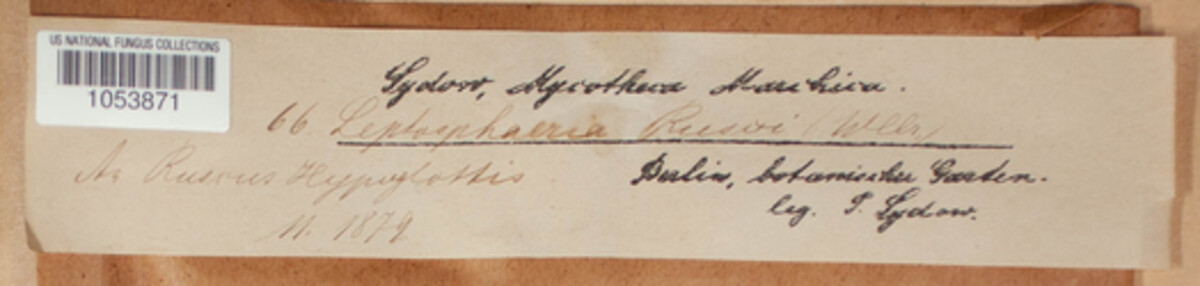 US NATIONAL FUNGUS COLLECTIONS
1053871
Sydow, Mycotheca Marchica.
66. Leptosphaeria Rusci (Wllr)
An Ruscus Hypoglottis
Berlin, botanischer Garten.
leg. P. Sydow.
11. 1879